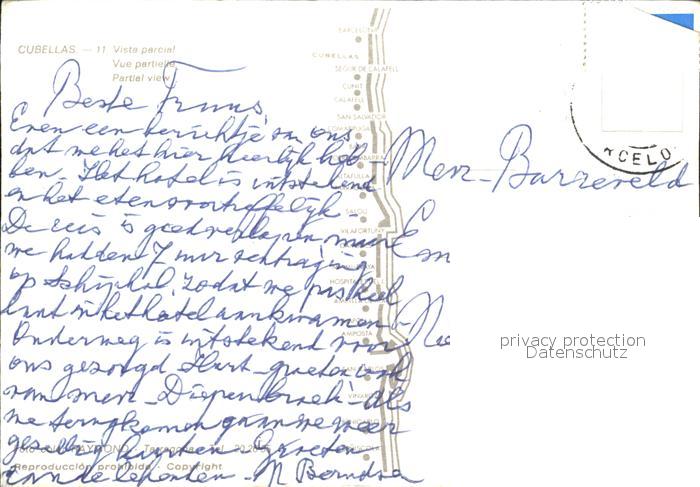 CUBELLAS. — 11 Vista parcial
Vue partielle
Partial view
Beste Truus,
Even een berichtje van ons
dat we het hier heerlijk heb-
ben. Het hotel is uitstekend
en het eten voortreffelijk -
De reis is goed verlopen maar
we hadden 7 uur vertraging
op Schiphol, zodat we pas heel
laat in het hotel aankwamen.
Onderweg is uitstekend voor
ons gezorgd. Hart. groeten ook
van mevr. Diepenbroek - Als
we terugkomen gaan we weer
gezellig kaarten. Groeten
aan de
M Berndsen
Mevr. Barreveld
BARCELONA
CUBELLAS
SEGUR DE CALAFELL
CUNIT
CALAFELL
SAN SALVADOR
ALTAFULLA
SALOU
VILAFORTUNY
AMPOSTA
RCELO
RAYMOND - Tarragona - Tel.
Reproducción prohibida - Copyright
privacy protection
Datenschutz